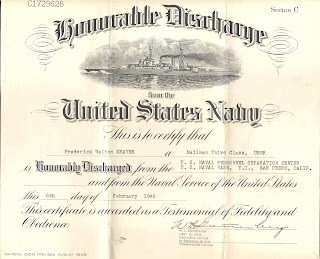 C1729626
Series C
Honorable Discharge
from the
United States Navy
This is to certify that
Frederick Walton SHAVER a Mailman Third Class, USNR
is Honorably Discharged from the U. S. NAVAL PERSONNEL SEPARATION CENTER
U. S. NAVAL BASE, T.I., SAN PEDRO, CALIF.
and from the Naval Service of the United States
this 6th day of February 1946
This certificate is awarded as a Testimonial of Fidelity and
Obedience.